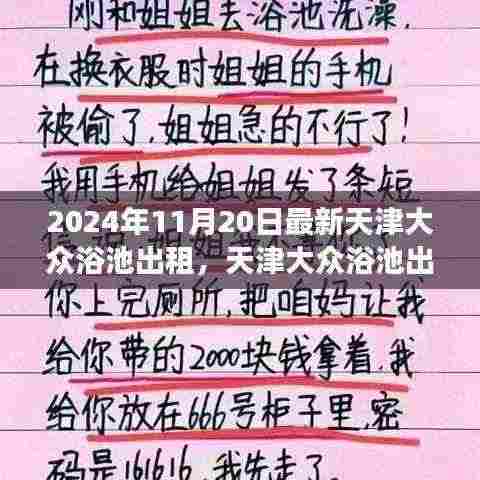 刚和姐姐去浴池洗澡,
在换衣服时姐姐的手机
被偷了,姐姐急的不行了!
我用手机给姐姐发了条短
2024年11月20日最新天津大
众浴池出租，天津大众浴池出
你上完厕所,把咱妈让我
给你带的2000块钱拿着,我
给你放在666号柜子里,密
码是161616,我先走了。